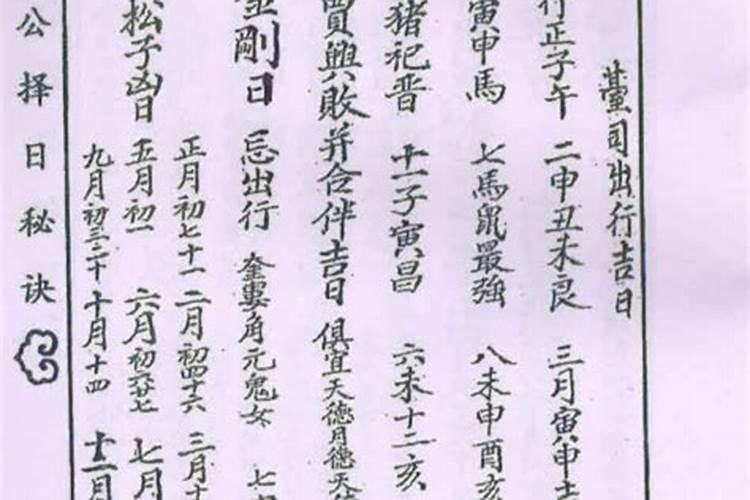 臺司出行吉日
行正子午 二申丑未良 三月寅申
寅申馬 七馬鼠最強 八未申酉亥
豬祀晋 十一子寅昌 六未十二亥
賈興敗并合伴吉日 俱宜天德月德天
金剛日 忌出行 奎婁角亢鬼女 七
正月初七十一 二月初四十六 三月十
松子凶日 五月初一 六月初六廿七 七月
九月初三二十 十月十四 十一月
公择日秘诀